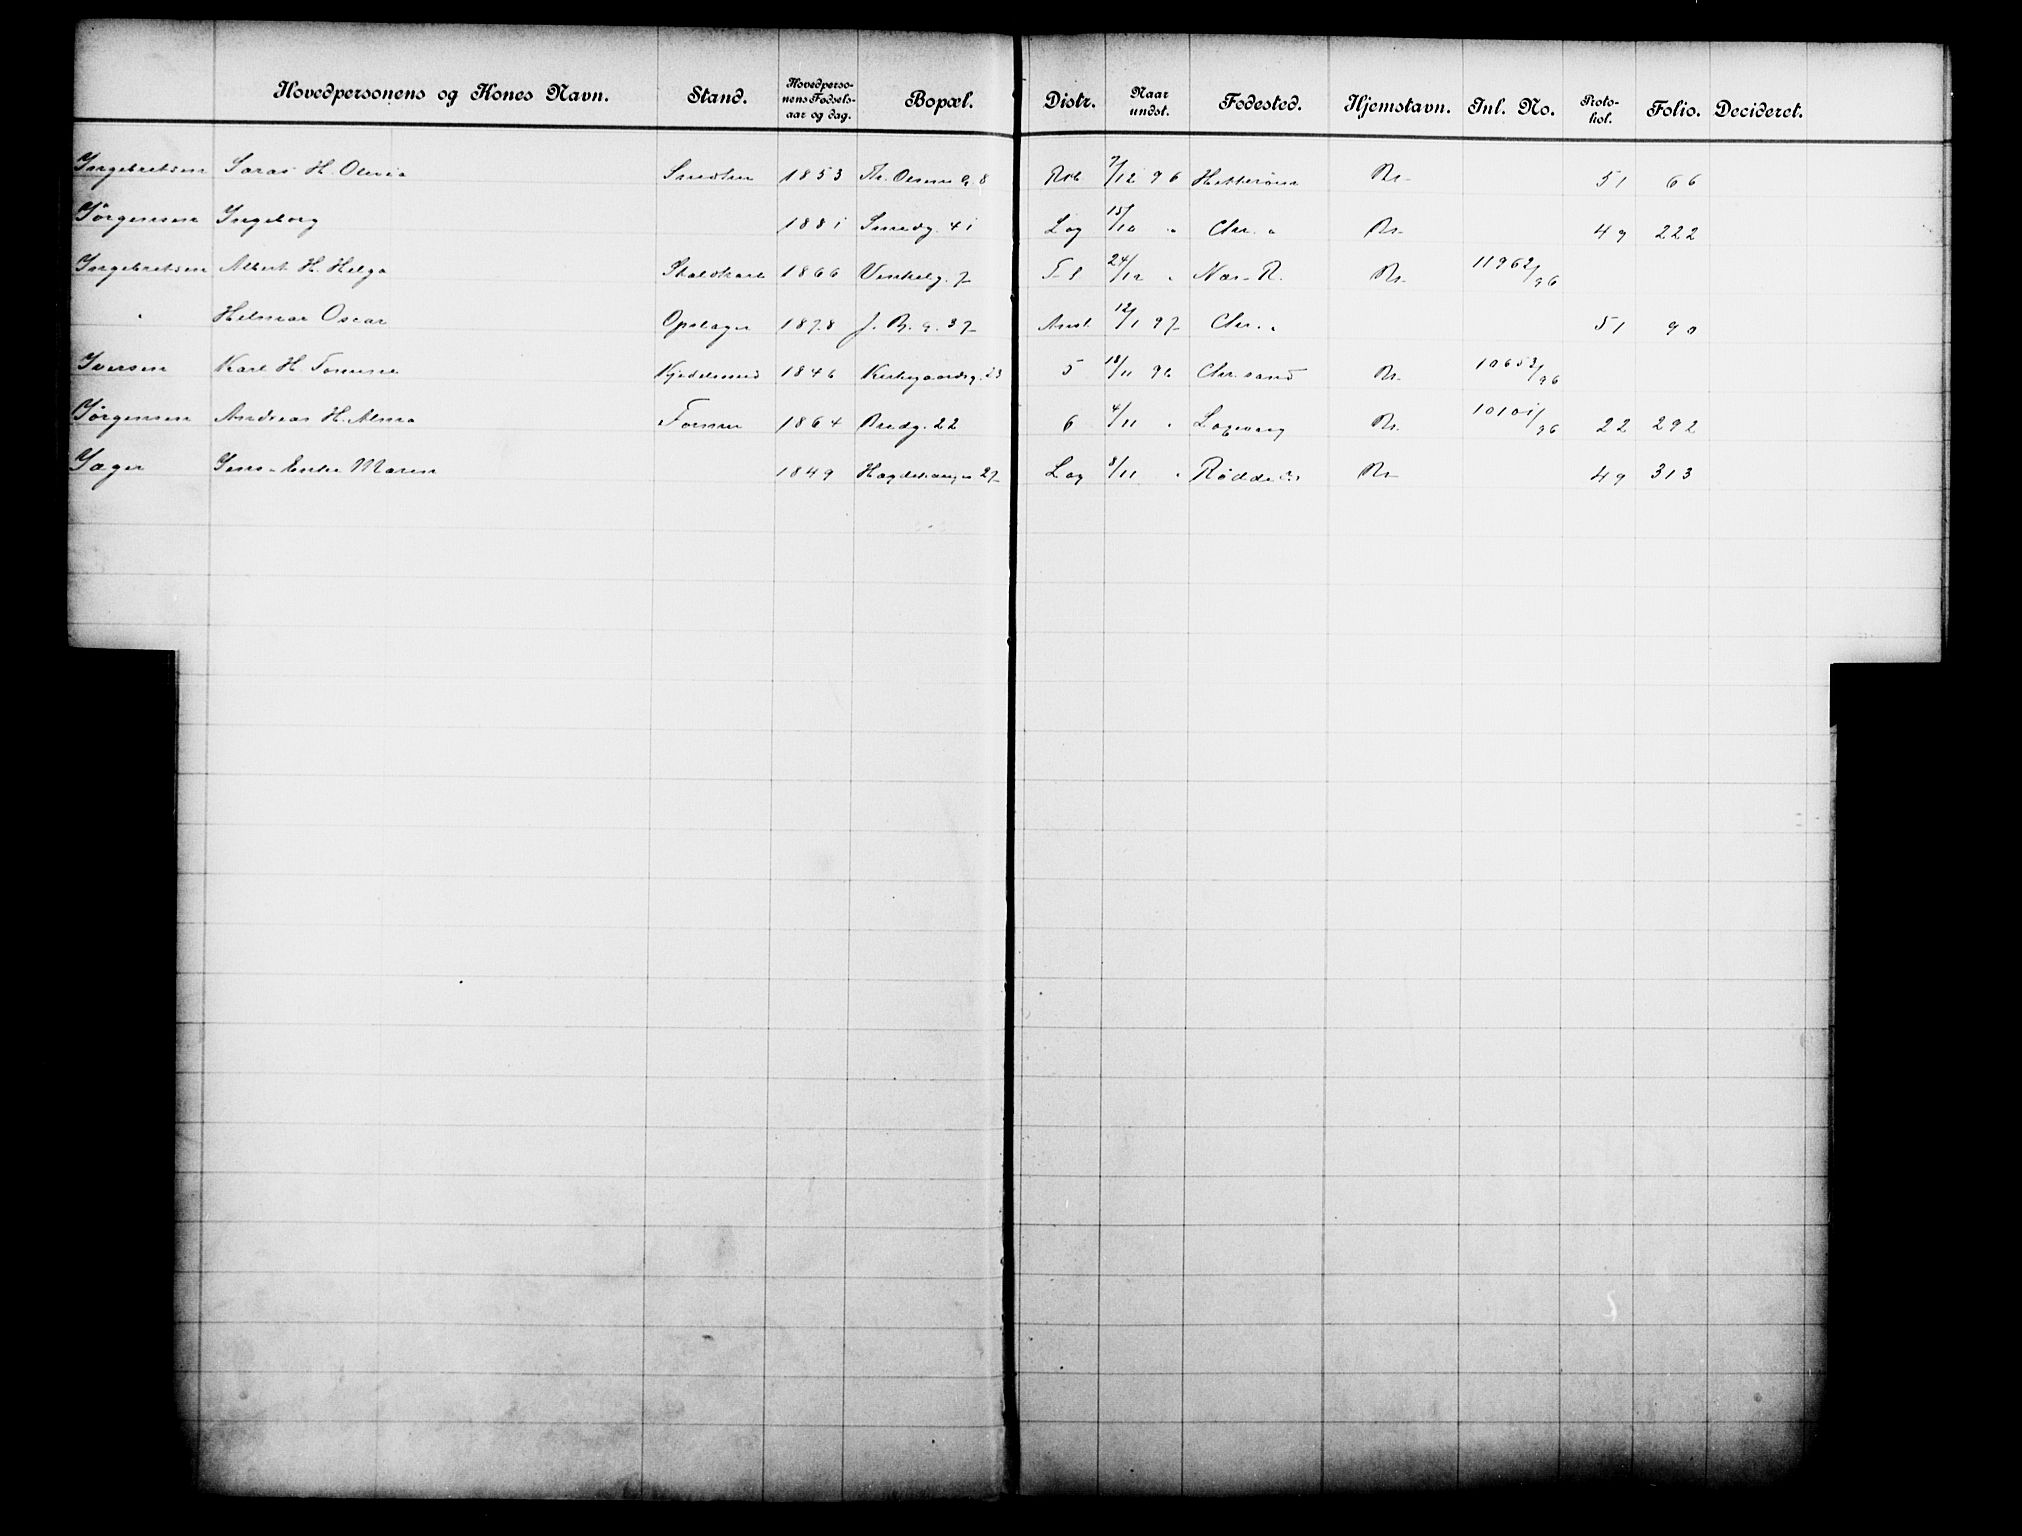 Hovedpersonens og Kones Navn. Stand. Hovedpersonens Fødselsaar og dag. Bopæl. Distr. Naar undst. Fødested. Hjemstavn. Inl. No. Protokol. Folio. Decideret.
Ingebretsen Laras H. Olevia 1853 Th. Olsens g. 8 7/12 96 Hitterøen Kr. 51 66
Jørgensen Ingeborg 1881 Smedg. 41 Lag 15/10 " Chr. a Kr. 49 222
Ingebretsen Albert H. Helga Staldkarl 1866 Vinkelg. 7 24/12 " Næs. R. Kr. 11962/96
" Helmar Oscar Opslager 1878 J. B. g. 37 Anst. 12/1 97 Chr. a 51 90
Iversen Karl H. Tomine Kjedelsmed 1846 Kirkegaardsg. 23 5 18/11 96 Chr.sand Kr. 10653/96
Jørgensen Andreas H. Alma Former 1864 Bredg. 22 6 4/11 " Kr. 10101/96 22 292
Jæger Jens Enke Maren 1849 27 Lag 8/11 " Kr. 49 313